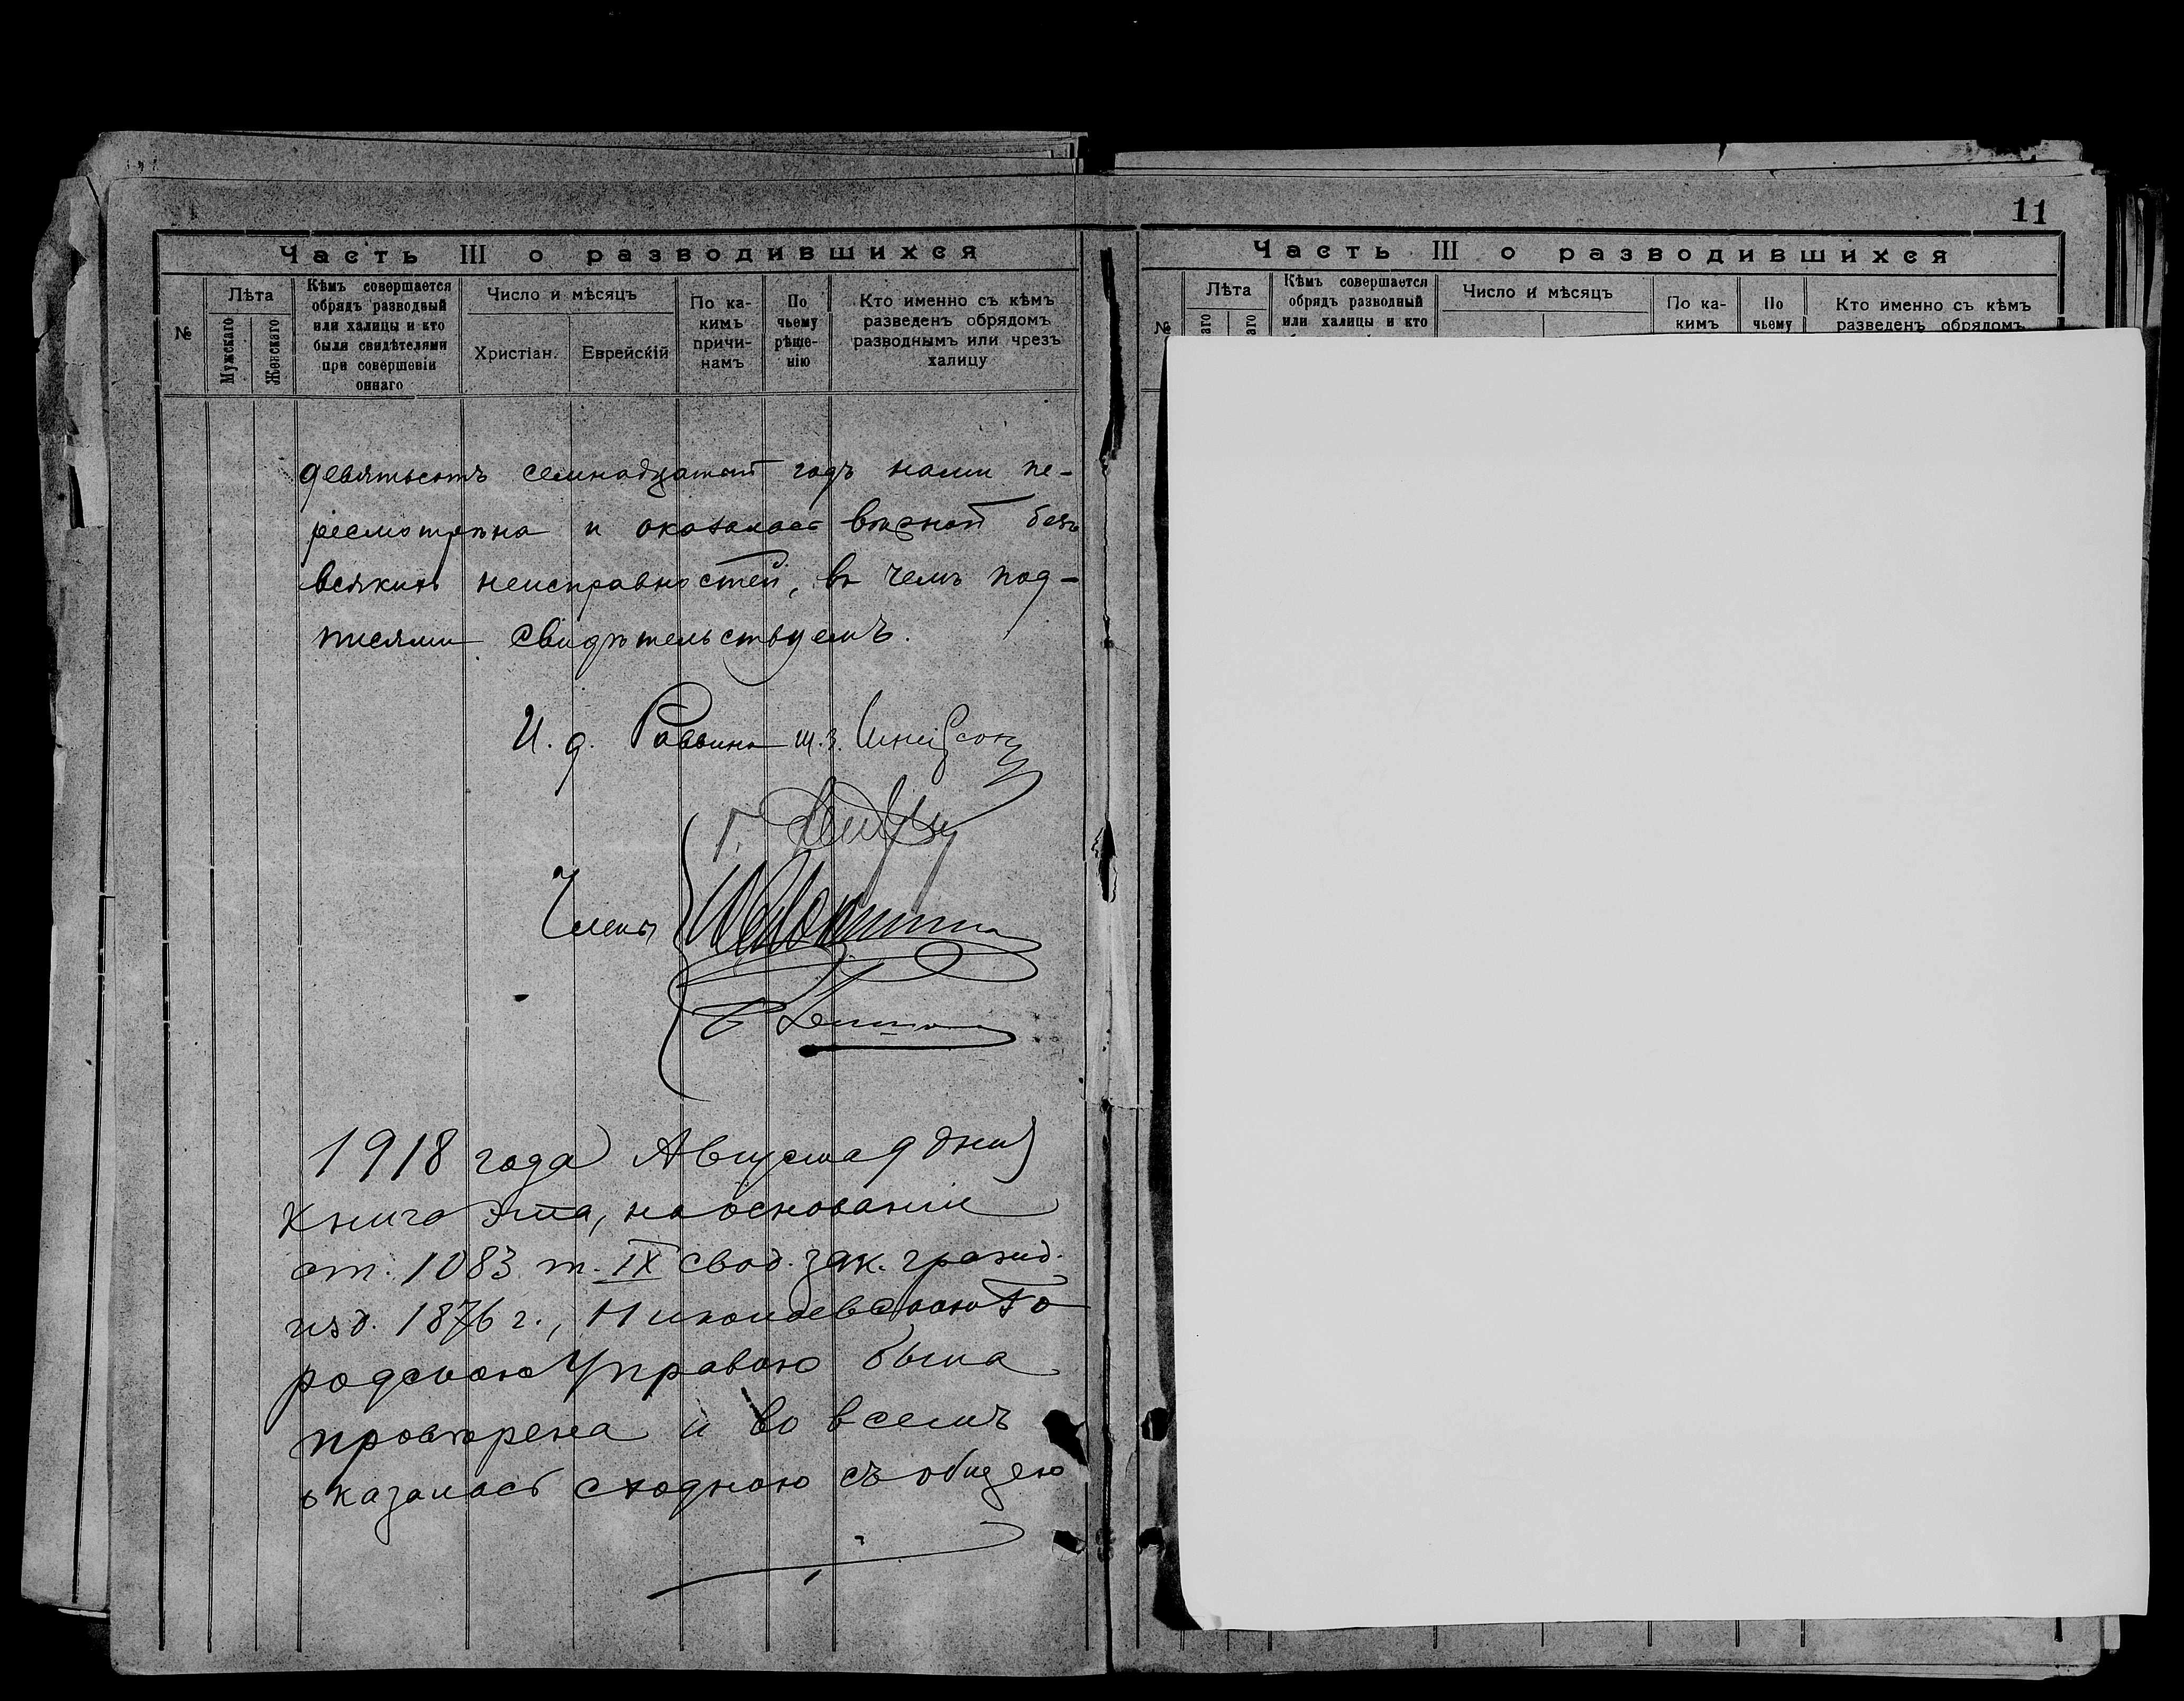 11
Часть III о разводившихся
№
Лѣта
Мужскаго
Женскаго
Кѣмъ совершается
обрядъ разводный
или халицы и кто
были свидѣтелями
при совершеніи
оннаго
Число и мѣсяцъ
Христіан.
Еврейскій
По ка-
кимъ
причи-
намъ
По
чьему
рѣше-
нію
Кто именно съ кѣмъ
разведенъ обрядомъ
разводнымъ или чрезъ
халицу
девятьсотъ семнадцатый годъ нами пе-
ресмотрѣна и оказалась вѣрной безъ
всякихъ неисправностей, въ чемъ под-
писями свидѣтельствуемъ.
И. д. Раввина
Члены
1918 года Августа 9 дня
Книга эта, на основаніи
ст. 1083 т. IX свод. зак. гражд.
изд. 1876 г., Николаевскою Го
родскою Управою была
провѣрена и во всемъ
оказалась сходною съ общею
Часть III о разводившихся
№
Лѣта
аго
аго
Кѣмъ совершается
обрядъ разводный
или халицы и кто
Число и мѣсяцъ
По ка-
кимъ
По
чьему
Кто именно съ кѣмъ
разведенъ обрядомъ